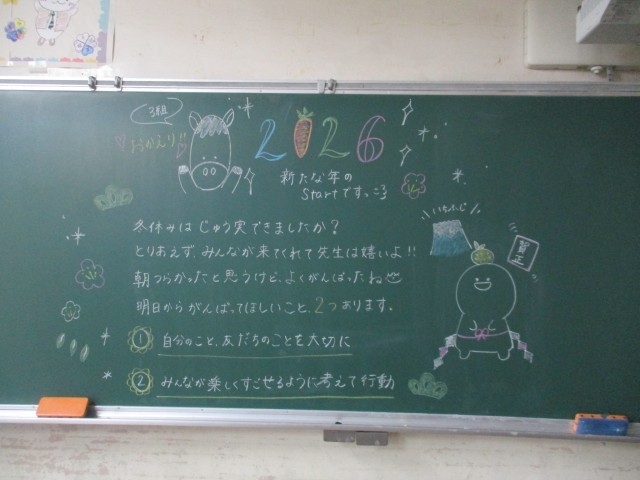 3組
おかえり!!
2026
新たな年の
Startですっころ
いちふじ
賀正
冬休みはじゅう実できましたか?
とりあえず、みんなが来てくれて先生は嬉いよ!!
朝つらかったと思うけど、よくがんばったね
明日からがんばってほしいこと、2つあります。
① 自分のこと、友だちのことを大切に
② みんなが楽しくすごせるように考えて行動